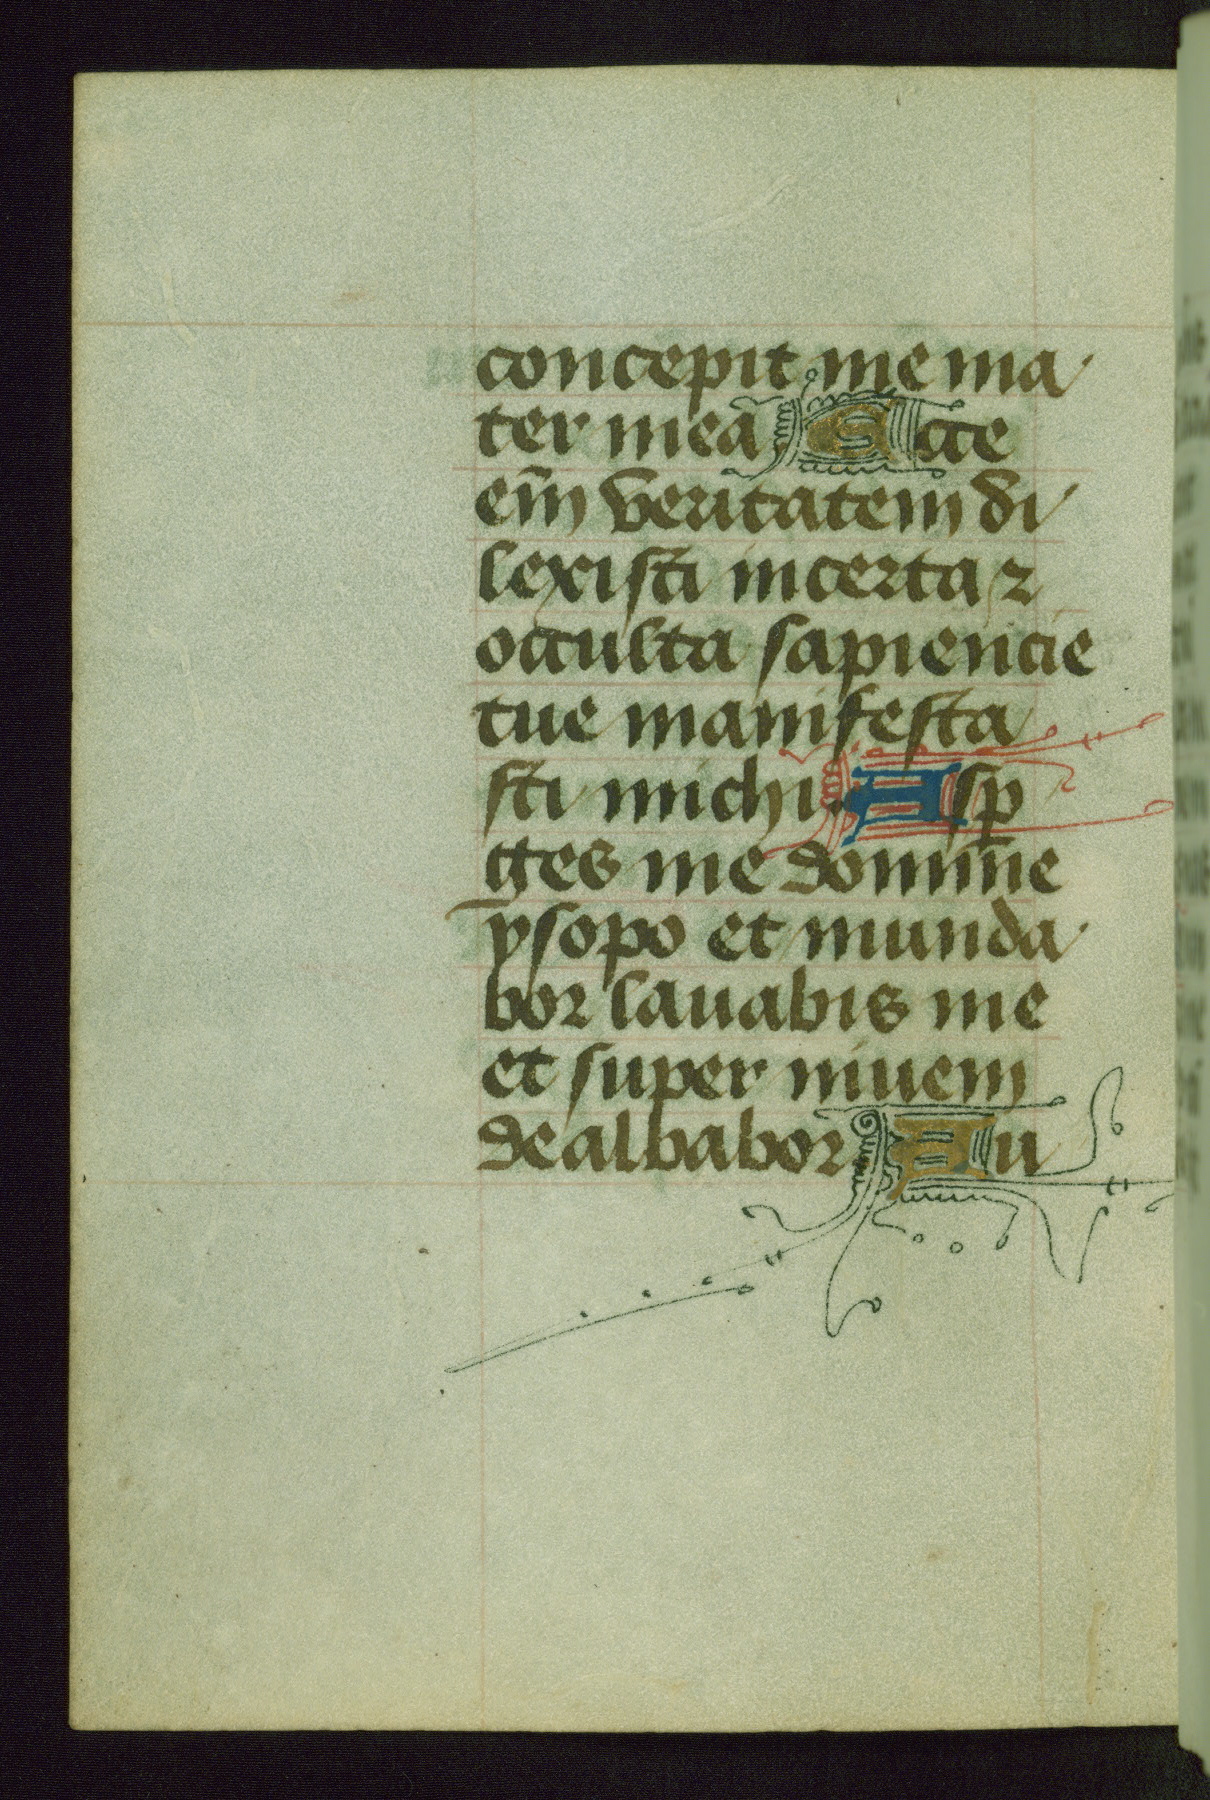 concepit me ma
ter mea Ecce
em̃ veritatem di
lexisti incerta ⁊
occulta sapiencie
tue manifesta
sti michi. Asꝑ
ges me domine
ysopo et munda
bor lauabis me
et super niuem
dealbabor Au